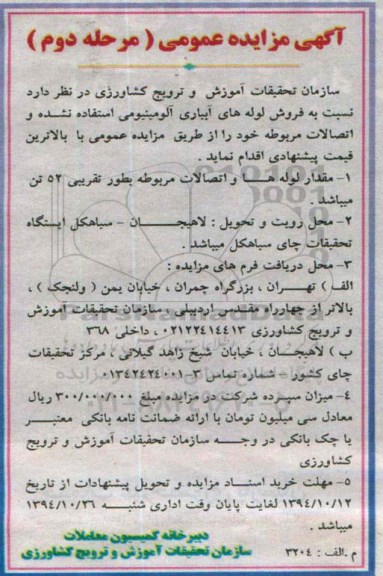 آگهی مزایده عمومی ( مرحله دوم )
سازمان تحقیقات آموزش و ترویج کشاورزی در نظر دارد
نسبت به فروش لوله های آبیاری آلومینیومی استفاده نشده و
اتصالات مربوطه خود را از طریق مزایده عمومی با بالاترین
قیمت پیشنهادی اقدام نماید .
۱- مقدار لوله هـا و اتصالات مربوطه بطور تقریبی ۵۲ تن
میباشد .
۲- محل رویت و تحویل : لاهیجـان - سیاهکل ایستگاه
تحقیقات چای سیاهکل میباشد .
۳- محل دریافت فرم های مزایده :
الف ) تهـران ، بزرگراه چمران ، خیابان یمن ( ولنجک ) ،
بالاتر از چهارراه مقدس اردبیلی ، سازمان تحقیقات آموزش
و ترویج کشاورزی ۰۲۱۲۲۴۱۴۴۱۳ ، داخلی ۳۶۸
ب ) لاهیجـان ، خیابان شیخ زاهد گیلانی ، مرکز تحقیقات
چای کشور - شماره تماس ۳-۰۱۳۴۲۴۲۴۰۰۱
۴- میزان سپرده شرکت در مزایده مبلغ ۳۰۰/۰۰۰/۰۰۰ ریال
معادل سی میلیون تومان با ارائه ضمانت نامه بانکی معتبـر
یا چک بانکی در وجـه سازمان تحقیقات آموزش و ترویج
کشاورزی
۵- مهلت خرید اسنـاد مزایده و تحویل پیشنهادات از تاریخ
۱۳۹۴/۱۰/۱۲ لغایت پایان وقت اداری شنبـه ۱۳۹۴/۱۰/۲۶
میباشد .
دبیرخانه کمیسیون معاملات
سازمان تحقیقات آموزش و ترویج کشاورزی
م .الف : ۳۲۰۴